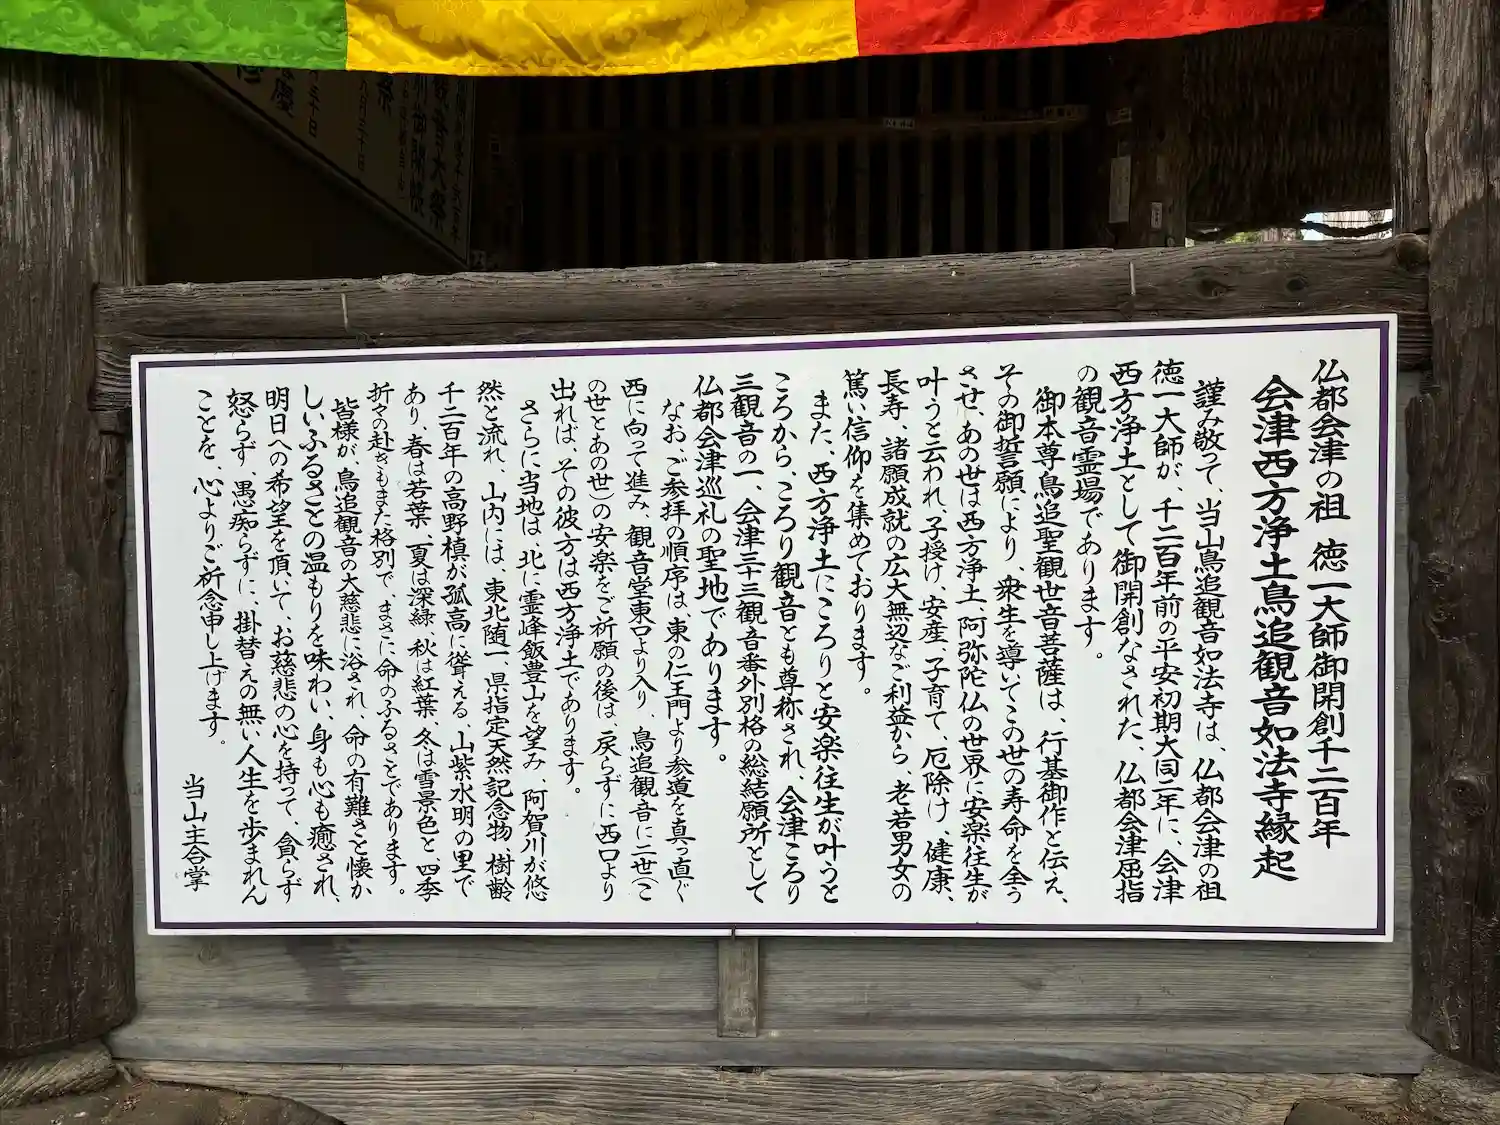 仏都会津の祖 徳一大師御開創千二百年
会津西方浄土鳥追観音如法寺縁起
謹み敬って、当山鳥追観音如法寺は、仏都会津の祖
徳一大師が、千二百年前の平安初期大同二年に、会津
西方浄土として御開創なされた、仏都会津屈指
の観音霊場であります。
御本尊鳥追聖観世音菩薩は、行基御作と伝え、
その御誓願により、衆生を導いてこの世の寿命を全う
させ、あの世は西方浄土、阿弥陀仏の世界に安楽往生が
叶うと云われ、子授け、安産、子育て、厄除け、健康、
長寿、諸願成就の広大無辺なご利益から、老若男女の
篤い信仰を集めております。
また、西方浄土にころりと安楽往生が叶うと
ころから、ころり観音とも尊称され、会津ころり
三観音の一、会津三十三観音番外別格の総結願所として
仏都会津巡礼の聖地であります。
なおご参拝の順序は、東の仁王門より参道を真っ直ぐ
西に向って進み、観音堂東口より入り、鳥追観音に二世(こ
の世とあの世)の安楽をご祈願の後は、戻らずに西口より
出れば、その彼方は西方浄土であります。
さらに当地は、北に霊峰飯豊山を望み、阿賀川が悠
然と流れ、山内には、東北随一、県指定天然記念物、樹齢
千二百年の高野槙が孤高に聳える、山紫水明の里で
あり、春は若葉、夏は深緑、秋は紅葉、冬は雪景色と、四季
折々の赴きもまた格別で、まさに命のふるさとであります。
皆様が、鳥追観音の大慈悲に浴され、命の有難さと懐か
しいふるさとの温もりを味わい、身も心も癒され、
明日への希望を頂いて、お慈悲の心を持って、貪らず
怒らず、愚痴らずに、掛替えの無い人生を歩まれん
ことを、心よりご祈念申し上げます。
当山主合掌